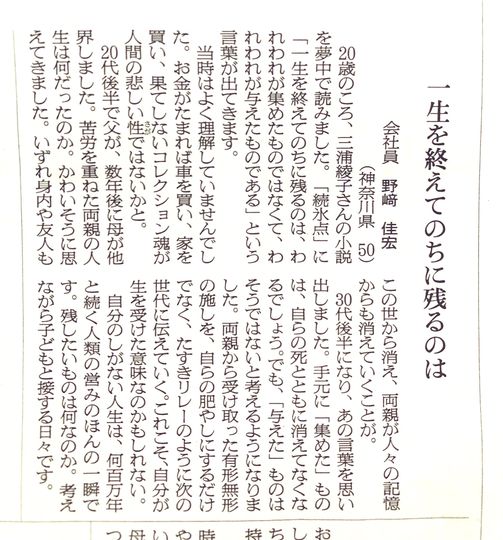 一生を終えてのちに残るのは
会社員 野﨑 佳宏
(神奈川県 50)
20歳のころ、三浦綾子さんの小説
を夢中で読みました。「続氷点」に
「一生を終えてのちに残るのは、わ
れわれが集めたものではなくて、わ
れわれが与えたものである」という
言葉が出てきます。
当時はよく理解していませんでし
た。お金がたまれば車を買い、家を
買い、果てしないコレクション魂が
人間の悲しい性さがではないかと。
20代後半で父が、数年後に母が他
界しました。苦労を重ねた両親の人
生は何だったのか。かわいそうに思
えてきました。いずれ身内や友人も
この世から消え、両親が人々の記憶
からも消えていくことが。
30代後半になり、あの言葉を思い
出しました。手元に「集めた」もの
は、自らの死とともに消えてなくな
るでしょう。でも、「与えた」ものは
そうではないと考えるようになりま
した。両親から受け取った有形無形
の施しを、自らの肥やしにするだけ
でなく、たすきリレーのように次の
世代に伝えていく。これこそ、自分が
生を受けた意味なのかもしれない。
自分のしがない人生は、何百万年
と続く人類の営みのほんの一瞬で
す。残したいものは何なのか。考え
ながら子どもと接する日々です。
お
し
ち
持
時
や
母
つ